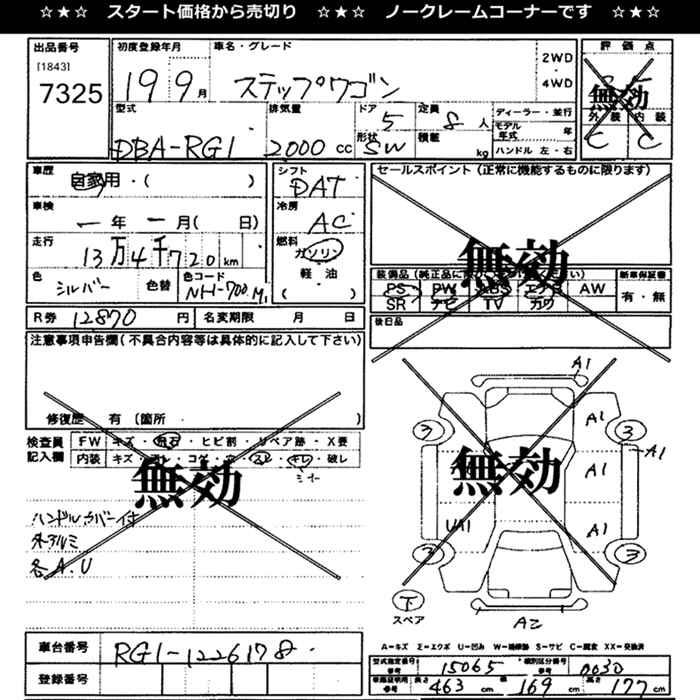 ☆★☆ スタート価格から売切り ☆★☆ ノークレームコーナーです ☆★☆
出品番号
[1843]
7325
初度登録年月
19 9月
車名・グレード
ステップワゴン
2WD
・
4WD
評価点
無効
外装 内装
C C
型式
DBA-RG1
排気量
2000 cc
ドア
5
形状
SW
定員
8人
積載
kg
ディーラー・並行
モデル年式 年
ハンドル 左・右
車歴
自家用・( )
車検
一年一月( 日)
走行
13万4千720km
色
シルバー
色替
色コード
NH-700M
シフト
DAT
冷房
AC
燃料
ガソリン
軽油
( )
セールスポイント(正常に機能するものに限ります)
無効
PS PW ABS エアB AW
SR ナビ TV カワ
新車保証書
有・無
後日品
R券 12870円
名変期限 月 日
注意事項申告欄(不具合内容等は具体的に記入して下さい)
修復歴 有(箇所 )
検査員
記入欄
FW キズ・飛石・ヒビ割・リペア跡・X要
内装 キズ・
破レ
無効
ハンドルカバー付
外アルミ
各A.U
A1
A1
A1
A1
A1
UA1
A2
3
3
3
3
無効
下
スペア
車台番号
RG1-1226178
登録番号
A=キズ E=エクボ U=凹み W=補修跡 S=サビ C=腐食 XX=交換済
型式指定番号
参考
15065
類別区分番号
参考
0030
長さ 463 cm
幅 169 cm
高さ 177 cm